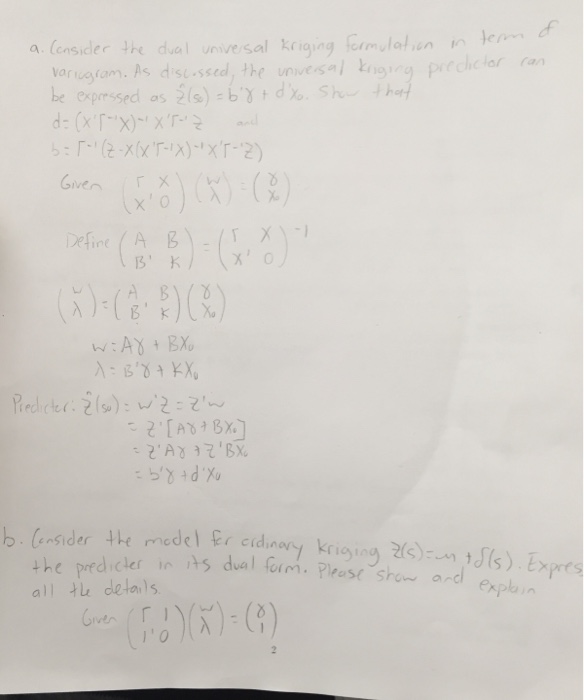 a. Consider the dual universal kriging formulation in term of
variogram. As discussed, the universal kriging predictor can
be expressed as ẑ(s₀) = b'γ + d'x₀. Show that
d = (X'Γ⁻¹X)⁻¹X'Γ⁻¹Z and
b = Γ⁻¹(Z - X(X'Γ⁻¹X)⁻¹X'Γ⁻¹Z)
Given (Γ X; X' 0)(w; λ) = (γ; x₀)
Define (A B; B' K) = (Γ X; X' 0)⁻¹
(w; λ) = (A B; B' K)(γ; x₀)
w = Aγ + BX₀
λ = B'γ + KX₀
Predictor: ẑ(s₀) = w'Z = Z'w
= Z'[Aγ + BX₀]
= Z'Aγ + Z'BX₀
= b'γ + d'X₀
b. Consider the model for ordinary kriging Z(s) = m + δ(s). Expres
the predictor in its dual form. Please show and explain
all the details.
Given (Γ 1; 1' 0)(w; λ) = (γ; 1)
2